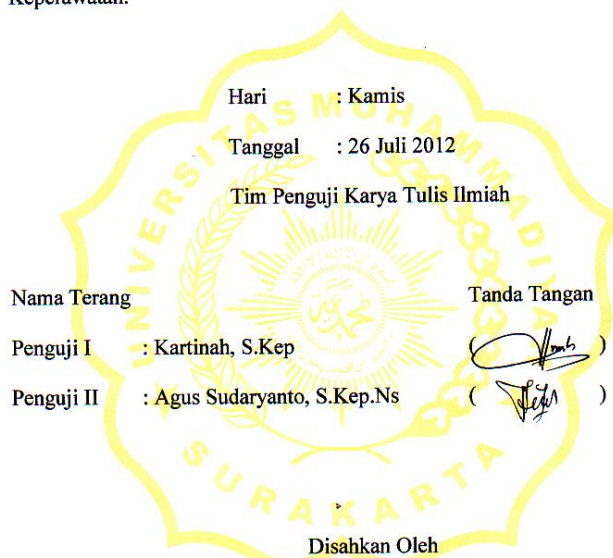 Keperawatan.
Hari : Kamis
Tanggal : 26 Juli 2012
Tim Penguji Karya Tulis Ilmiah
Nama Terang Tanda Tangan
Penguji I : Kartinah, S.Kep ( )
Penguji II : Agus Sudaryanto, S.Kep.Ns ( )
Disahkan Oleh
UNIVERSITAS MUHAMMADIYAH
SURAKARTA